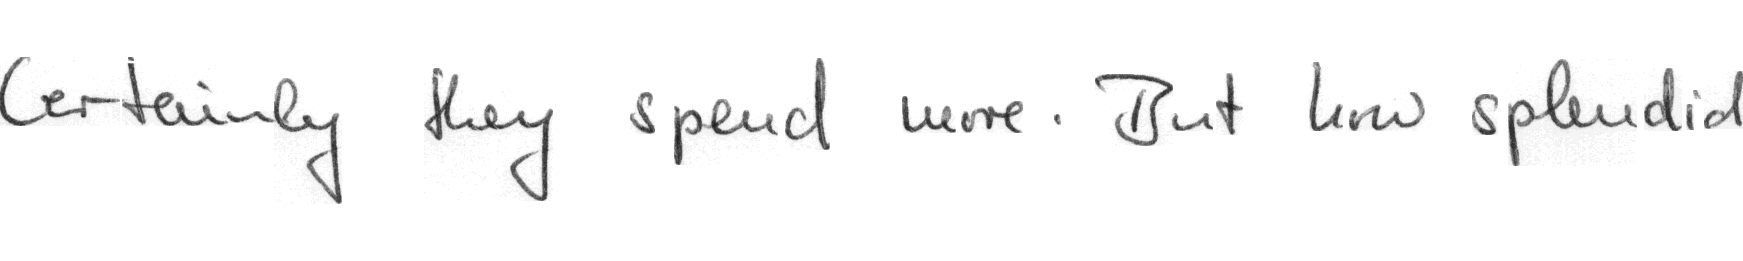 Certainly they spend more. But how splendid